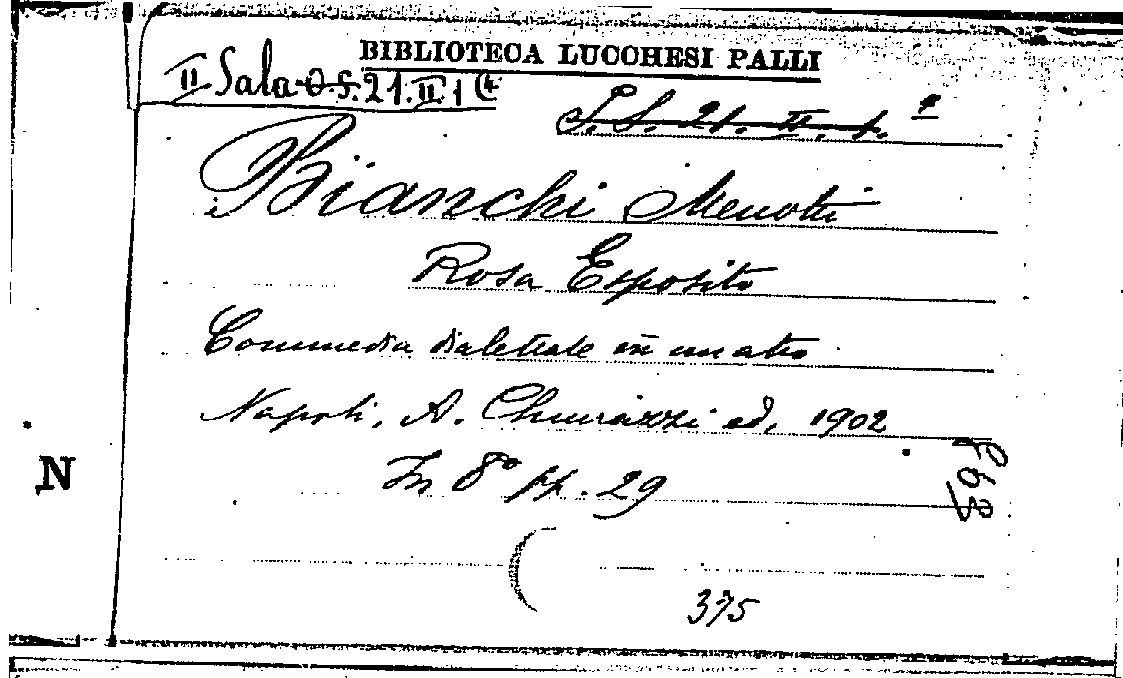 BIBLIOTECA LUCCHESI PALLI
II Sala O.S. 21. II. 1 (4
S. S. 21. II. 1. 4
Bianchi Menotti
Rosa Esposito
Commedia dialettale in un atto
Napoli, A. Chiurazzi ed. 1902
In 8° pp. 29
N
375